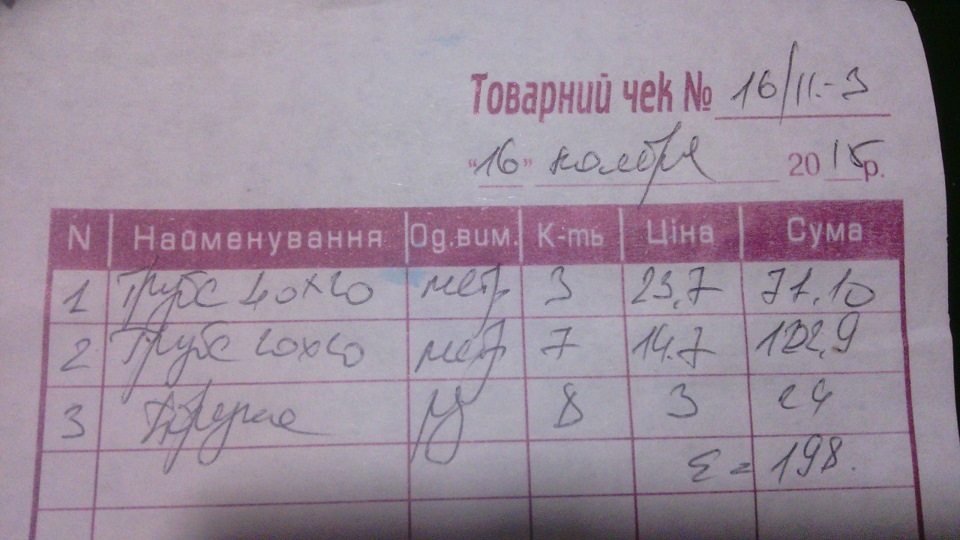 Товарний чек № 16/11.-3
"16" ноября 2015р.
N Найменування Од.вим. К-ть Ціна Сума
1 Труба 40х20 мет 3 23,7 71,10
2 Труба 20х20 мет 7 14.7 102,9
3 8 3 24
Σ = 198.